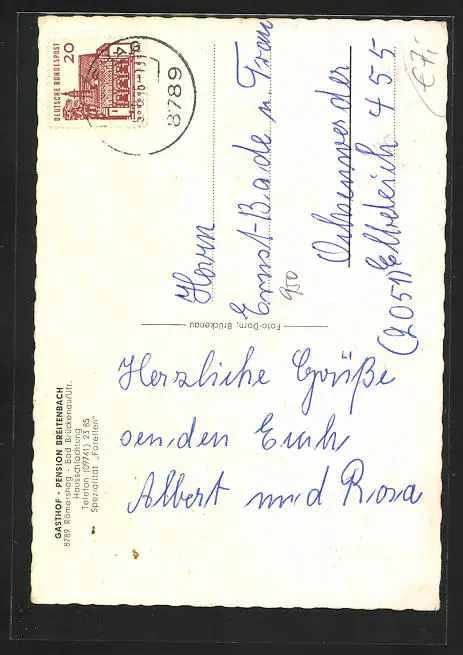 GASTHOF - PENSION BREITENBACH
8789 Römershag - Bad Brückenau/Ufr.
Hausschlachtung
Telefon (09741) 23 85
Spezialität „Forellen"
Herzliche Grüße
senden Euch
Albert und Rosa
Foto-Dorn, Brückenau
DEUTSCHE BUNDESPOST
20
8789
Herrn
Ernst-Bade u Frau
Ochsenwerder
(2051) Elbdeich 455
950
€7,-